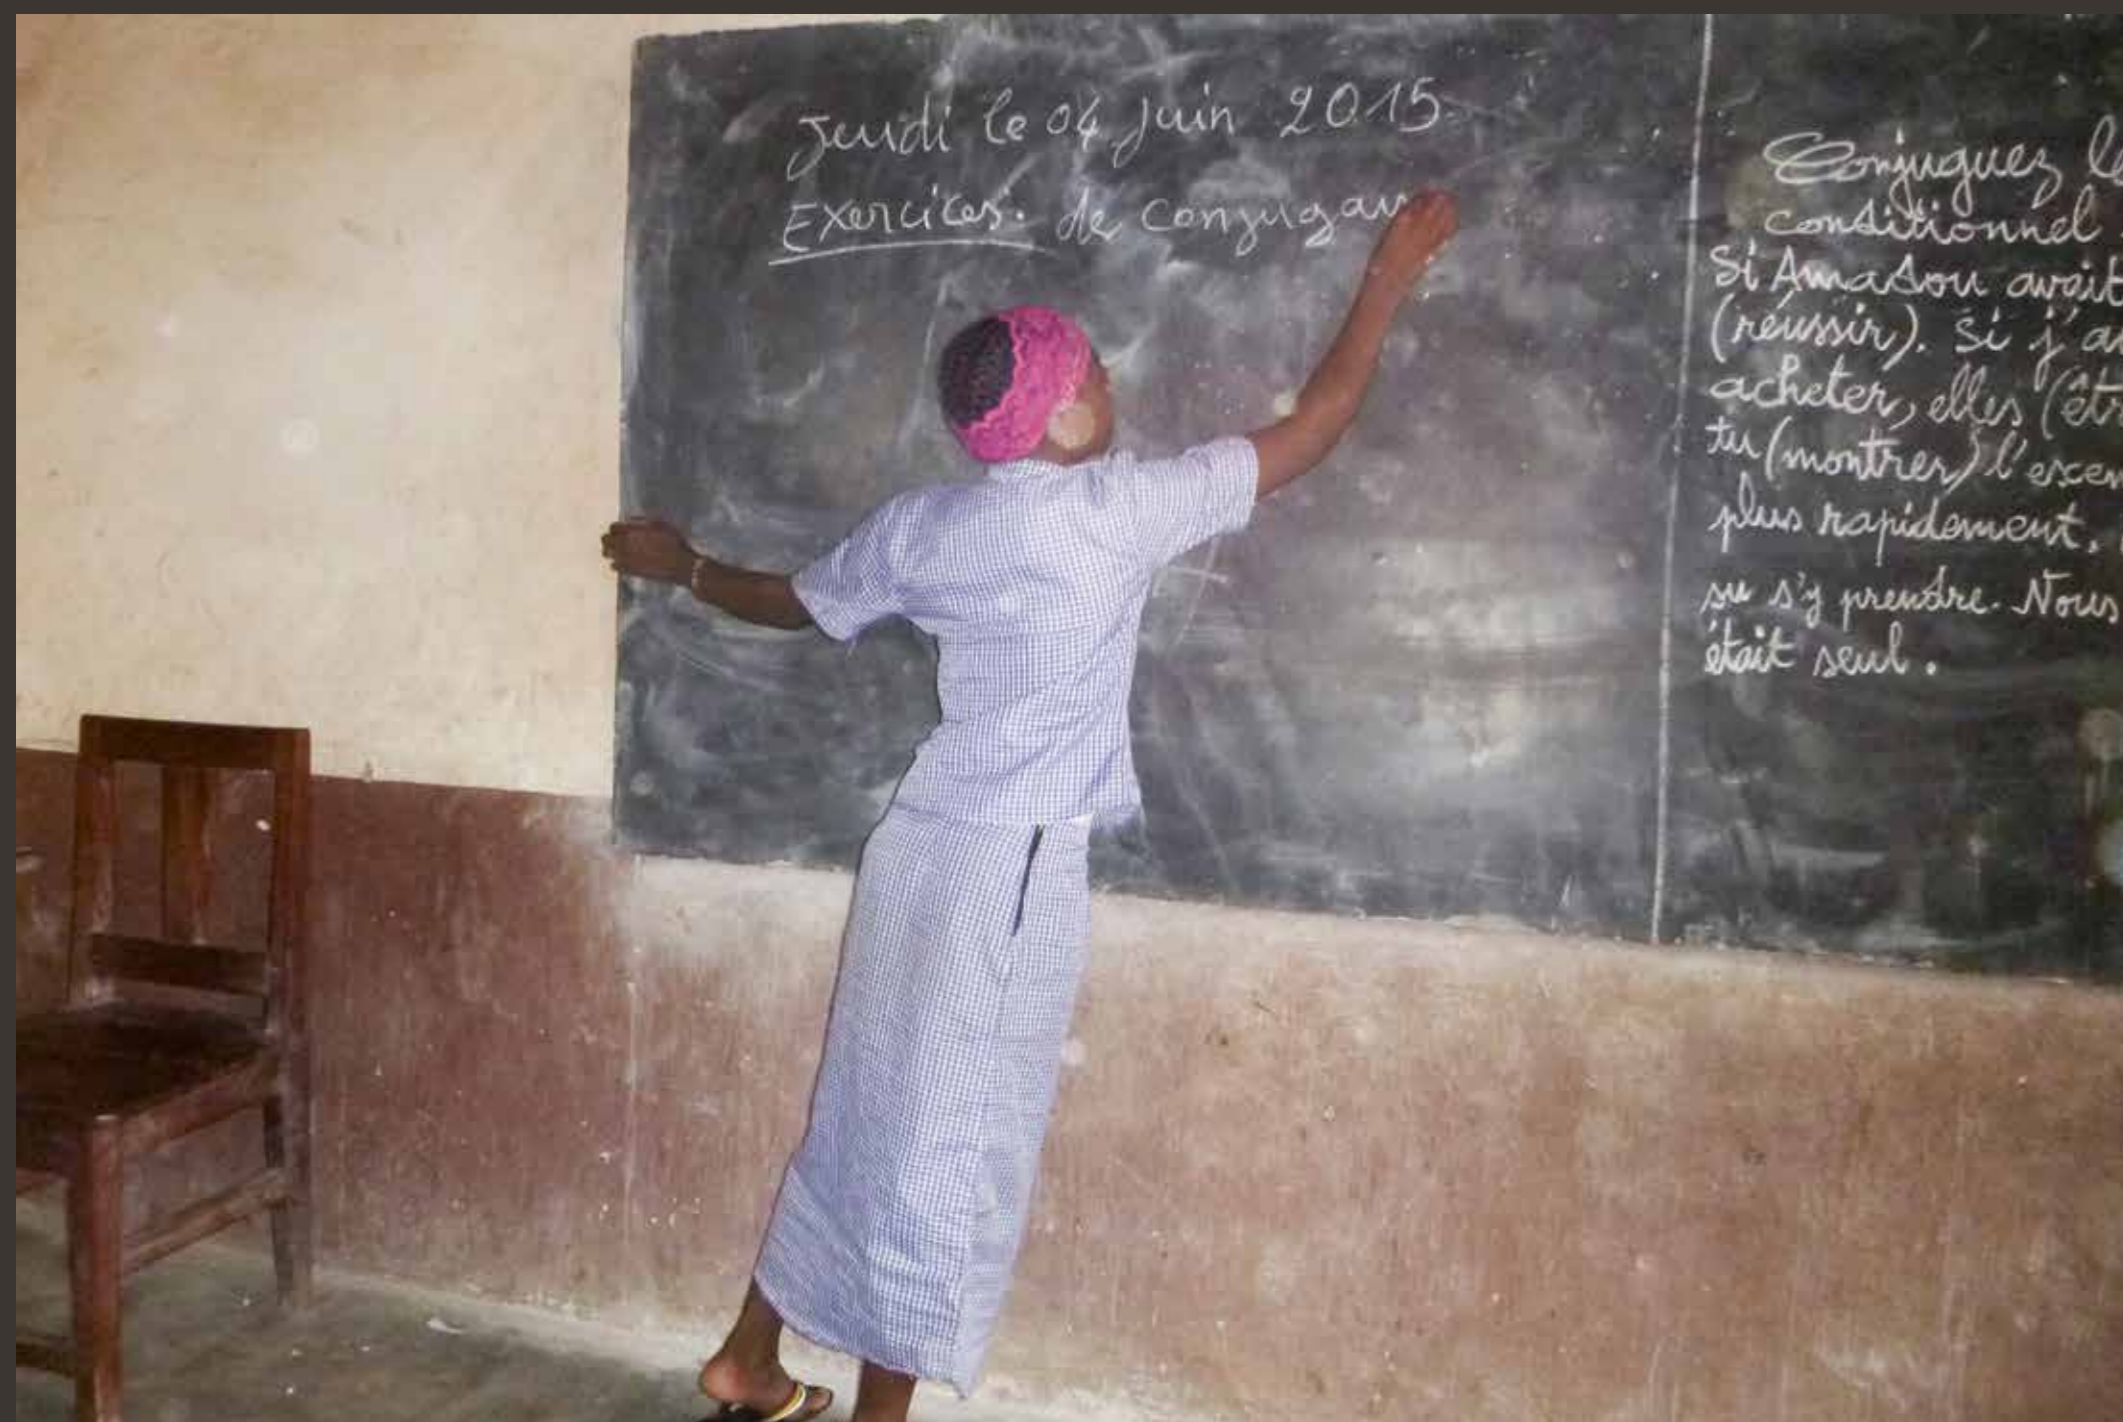 Jeudi le 04 Juin 2015
Exercices. de conjugau
Conjuguez le
conditionnel
Si Amadou avait
(réussir). Si j'a
acheter, elles (êtr
tu (montrer) l'exem
plus rapidement.
su s'y prendre. Nous
était seul.